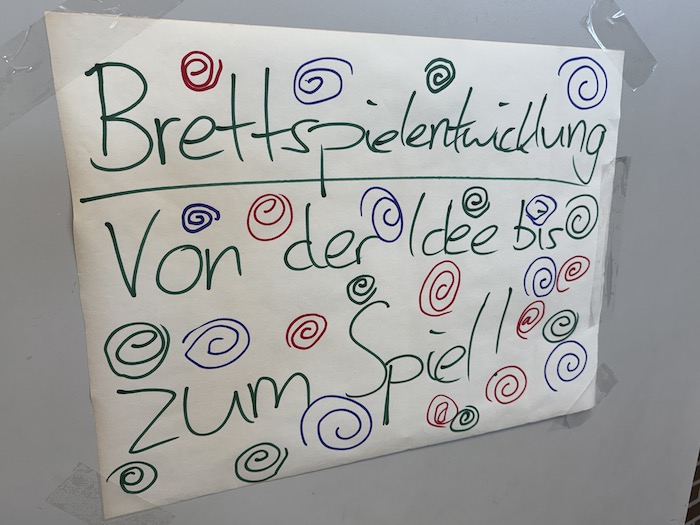 Brettspielentwicklung
Von der Idee bis
zum Spiel!